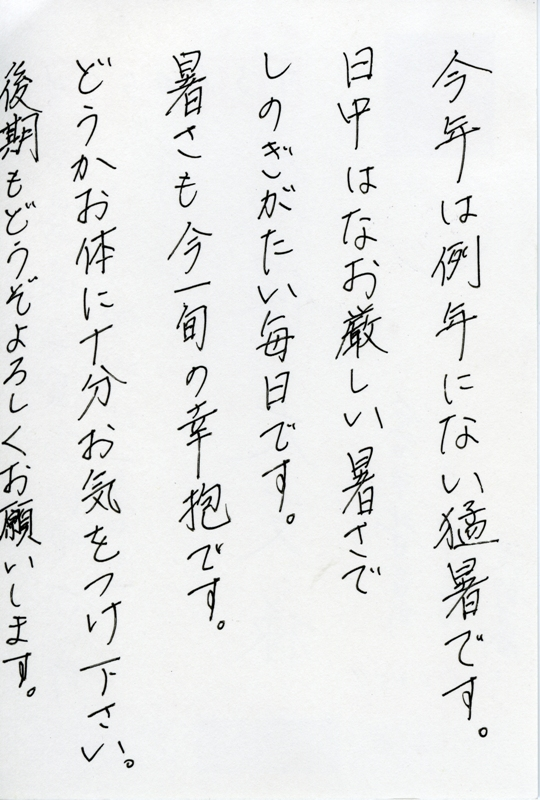 今年は例年にない猛暑です。
日中はなお厳しい暑さで
しのぎがたい毎日です。
暑さも今一旬の幸抱です。
どうかお体に十分お気をつけ下さい。
後期もどうぞよろしくお願いします。